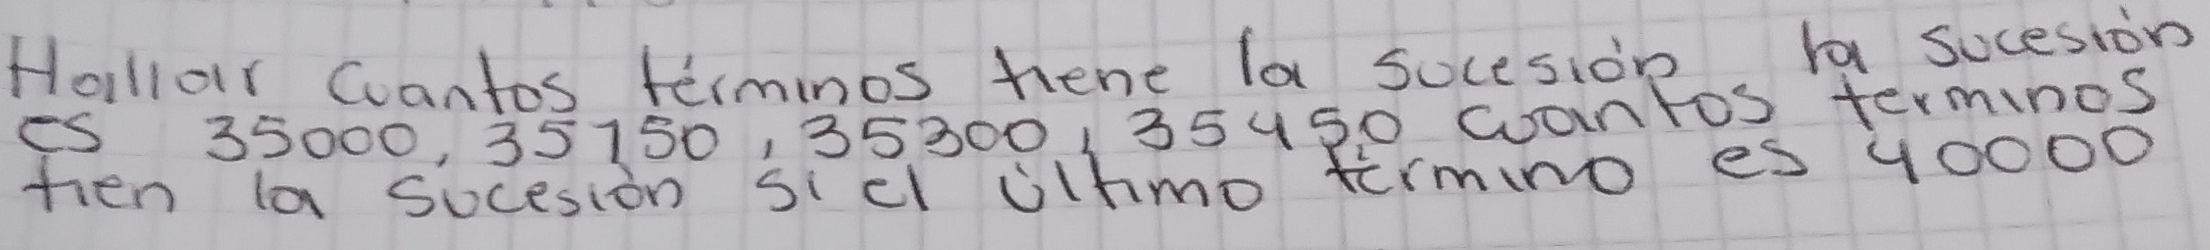 Hallar cuantos términos tiene la sucesión la sucesión
es 35000, 35150, 35300, 35450 cuantos terminos
tien la sucesión si el último término es 40000